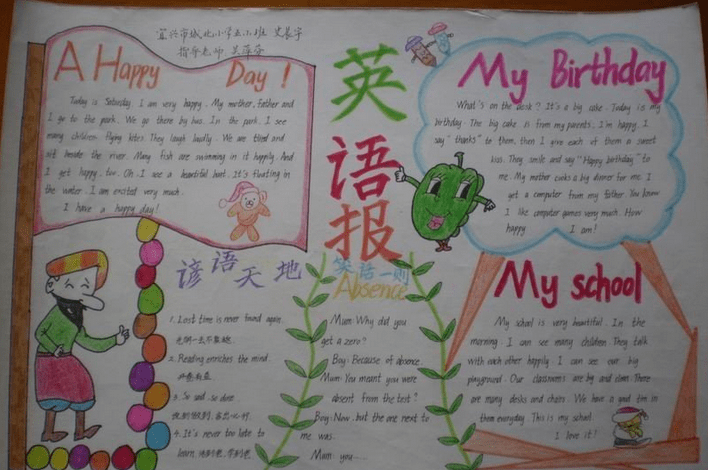 宜兴市城北小学五
指导老师
A Happy Day!
Today is Saturday. I am very happy. My mother, father and
I go to the park. We go there by bus. In the park, I see
many children flying kites. They laugh loudly. We are tired and
sit beside the river. Many fish are swimming in it happily. And
I get happy, too. Oh, I see a beautiful boat. It's floating in
the water. I am excited very much.
I have a happy day!
英语报
My Birthday
What's on the desk? It's a big cake. Today is my
birthday. The big cake is from my parents. I'm happy. I
say "thanks" to them, then I give each of them a sweet
kiss. They smile and say "Happy birthday" to
me. My mother cooks a big dinner for me. I
get a computer from my father. You know
I like computer games very much. How
happy I am!
谚语天地
1. Lost time is never found again.
2. Reading enriches the mind.
开卷有益
3. So said, so done.
说到做到,言出必行
4. It's never too late to
learn. 活到老,学到老
笑话一则
Absence
Mum: Why did you
get a zero?
Boy: Because of absence.
Mum: You meant you were
absent from the test?
Boy: Now, but the one next to
me was.
Mum: you....
My school
My school is very beautiful. In the
morning, I can see many children. They talk
with each other happily. I can see our big
playground. Our classrooms are big and clean. There
are many desks and chairs. We have a good time in
them everyday. This is my school.
I love it!